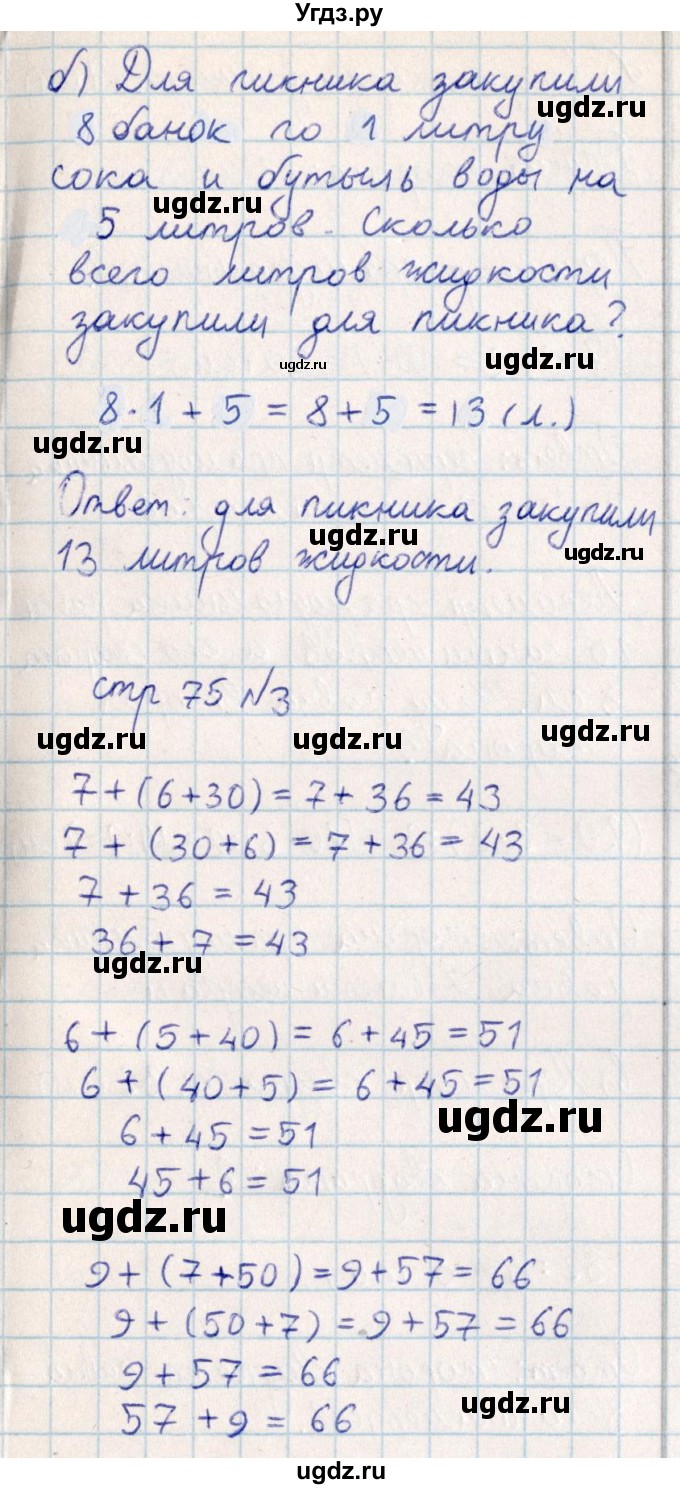 Угдз.ру
б) Для пикника закупили
ugdz.ru
8 банок по 1 литру
сока и бутыль воды на
ugdz.ru
5 литров. Сколько
всего литров жидкости
закупили для пикника?
ugdz.ru ugdz.ru
8·1 + 5 = 8 + 5 = 13 (л.)
ugdz.ru
Ответ: для пикника закупили
ugdz.ru
13 литров жидкости.
ugdz.ru
стр 75 №3
ugdz.ru ugdz.ru ugdz.ru
7 + (6 + 30) = 7 + 36 = 43
7 + (30 + 6) = 7 + 36 = 43
7 + 36 = 43
36 + 7 = 43
ugdz.ru
6 + (5 + 40) = 6 + 45 = 51
6 + (40 + 5) = 6 + 45 = 51
ugdz.ru
6 + 45 = 51
45 + 6 = 51
ugdz.ru
9 + (7 + 50) = 9 + 57 = 66
9 + (50 + 7) = 9 + 57 = 66
9 + 57 = 66
ugdz.ru
57 + 9 = 66
ugdz.ru